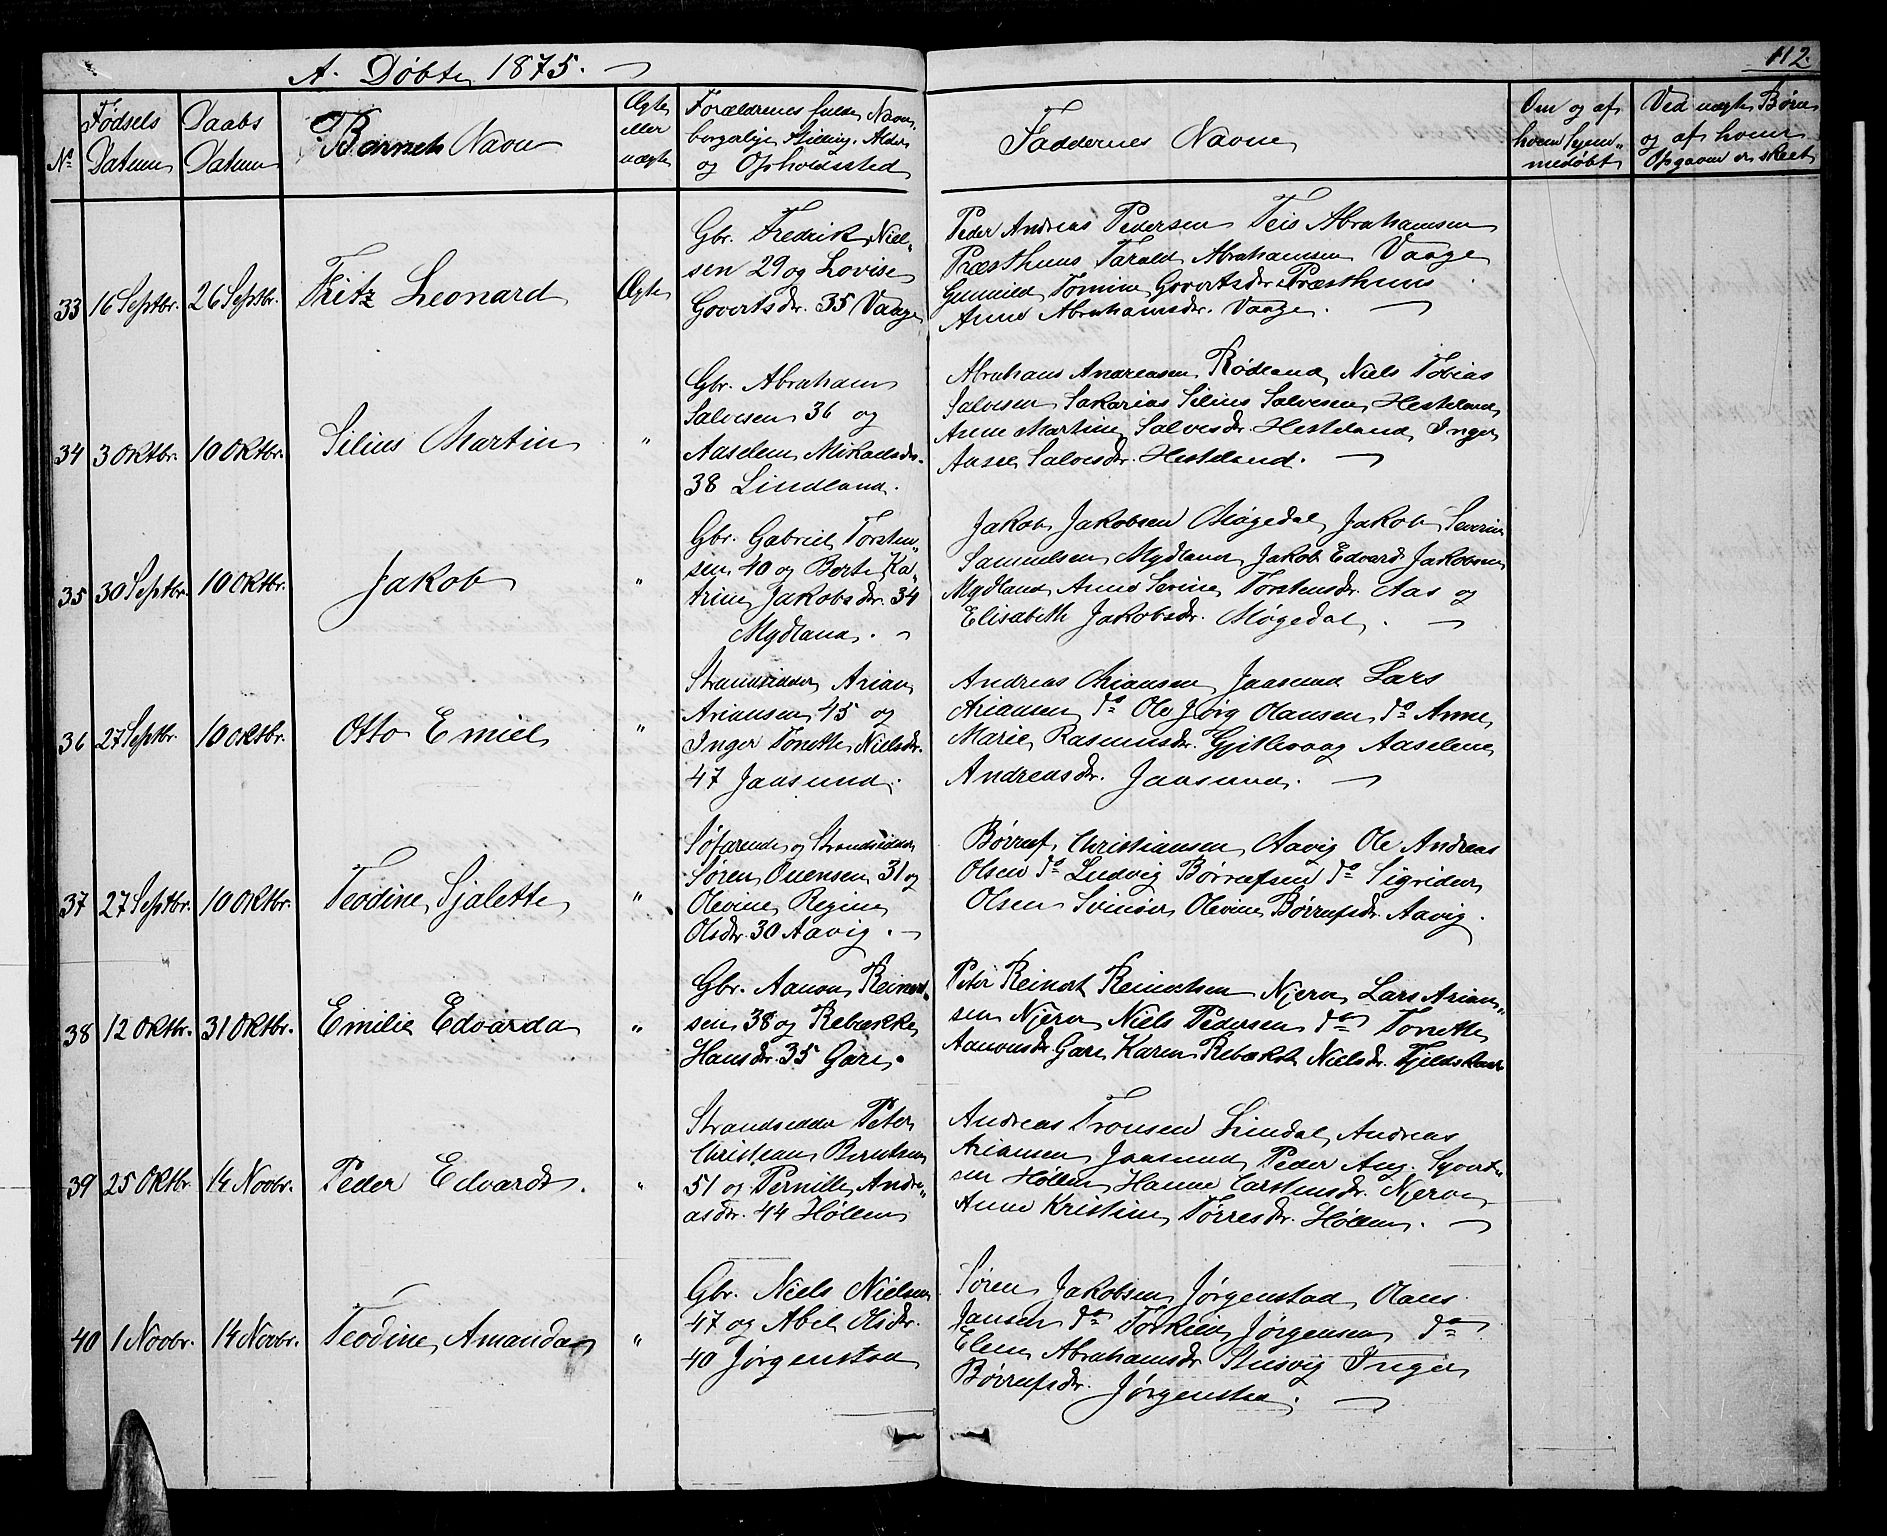 A. Døbte 1875.
112.
No
Fødsels Datum
Daabs Datum
Barnets Navn
Ægte eller uægte
Forældrenes fulde Navn, borgerlige Stilling, Alder og Opholdssted
Faddernes Navne
Om og af hvem hjemmedøbt
Ved uægte Børn og af hvem Opgaven er skeet
33 16 Septbr. 26 Septbr. Fritz Leonard Ægte
Gbr. Fredrik Niel-
sen 29 og Lovise
Govertsdr. 35 Vaage
Peder Andreas Pedersen Teis Abrahamsen
Præsthuus Tarald Abrahamsen Vaage
Gunnild Tomine Govertsdr. Præsthuus
Anne Abrahamsdr. Vaage.
34 3 Oktbr. 10 Oktbr. Silius Martin "
Gbr. Abraham
Salvesen 36 og
Aaselene Mikaelsdr.
38 Lindland.
Abraham Andreasen Rødland, Niels Tobias
Salvesen Sakarias Silius Salvesen Hesteland,
Anne Martine Salvesdr. Hesteland, Inger
Aase Salvesdr. Hesteland.
35 30 Septbr. 10 Oktbr. Jakob "
Gbr. Gabriel Torsten-
sen 40 og Berte Ka-
trine Jakobsdr. 34
Mydland.
Jakob Jakobsen Møgedal, Jakob Severin
Samuelsen Mydland Jakob Edvard Jakobsen
Mydland Anne Serine Torstensdr. Aas og
Elisabeth Jakobsdr. Møgedal.
36 27 Septbr. 10 Oktbr. Otto Emiel "
Strandsidder Arian
Ariansen 45 og
Inger Tonette Nielsdr.
47 Jaasund.
Andreas Ariansen Jaasund Lars
Ariansen do Ole Jørg Olausen do Anne
Marie Rasmusdr. Gjitlevaag Aaselene
Andreasdr. Jaasund.
37 27 Septbr. 10 Oktbr. Teodine Sjalette "
Søfarende og Strandsidder
Søren Ouensen 31 og
Olevine Regine
Olsdr. 30 Aavig.
Børruf Christiansen Aavig Ole Andreas
Olsen do Ludvig Børrufsen do Sigridur
Olsen Svinør Olevine Børrufsdr. Aavig.
38 12 Oktbr. 31 Oktbr. Emilie Edvarda "
Gbr. Aanon Reinert-
sen 38 og Rebekke
Hansdr. 35 Gare.
Peter Reinert Reinertsen Njerve Lars Arian-
sen Njerve Niels Pedersen do Tonette
Aanonsdr. Gare Karen Rebekke Nielsdr. Fjeldskaar
39 25 Oktbr. 14 Novbr. Peder Edvard. "
Strandsidder Peter
Christian Berntsen
51 og Pernille Andre-
asdr. 44 Høllen
Andreas Tronsen Lindal, Andreas
Ariansen Jaasund, Peder Aug. Syvert-
sen Høllen Hanne Carstensdr. Njerve
Anne Kristine Tørresdr. Høllen.
40 1 Novbr. 14 Novbr. Teodine Amanda "
Gbr. Niels Nielsen
47 og Abel Olsdr.
40 Jørgenstad
Søren Jakobsen Jørgenstad, Olaus
Jansen do Torkild Jørgensen do
Elene Abrahamsdr. Stusvig Inger
Børrufsdr. Jørgenstad.